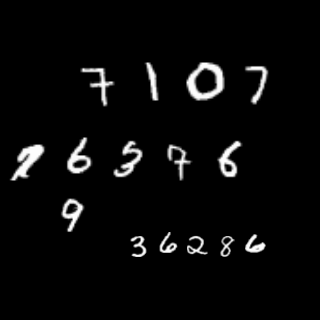 7107
26576
9
36286